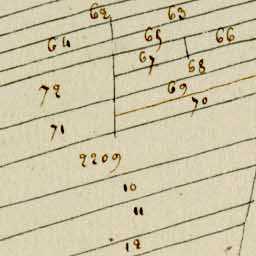 62 63
64 65 66
67 68
72 69
70
71
2209
10
11
12